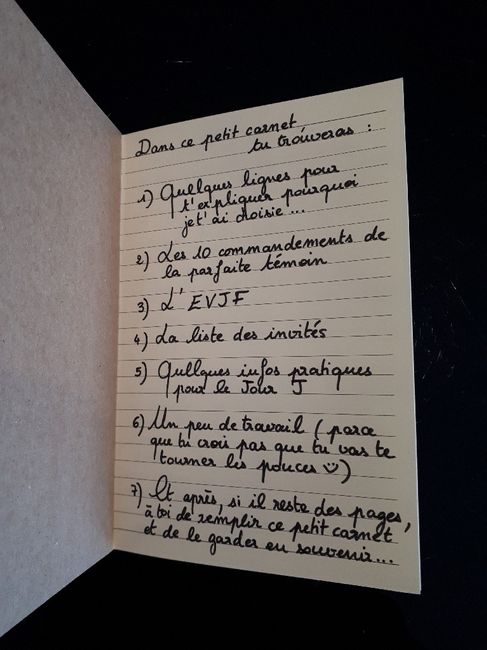 Dans ce petit carnet
tu trouveras :
1) Quelques lignes pour
t'expliquer pourquoi
je t'ai choisie ...
2) Les 10 commandements de
la parfaite témoin
3) L'EVJF
4) La liste des invités
5) Quelques infos pratiques
pour le Jour J
6) Un peu de travail ( parce
que tu crois pas que tu vas te
tourner les pouces ☺)
7) Et après, si il reste des pages,
à toi de remplir ce petit carnet
et de le garder en souvenir...